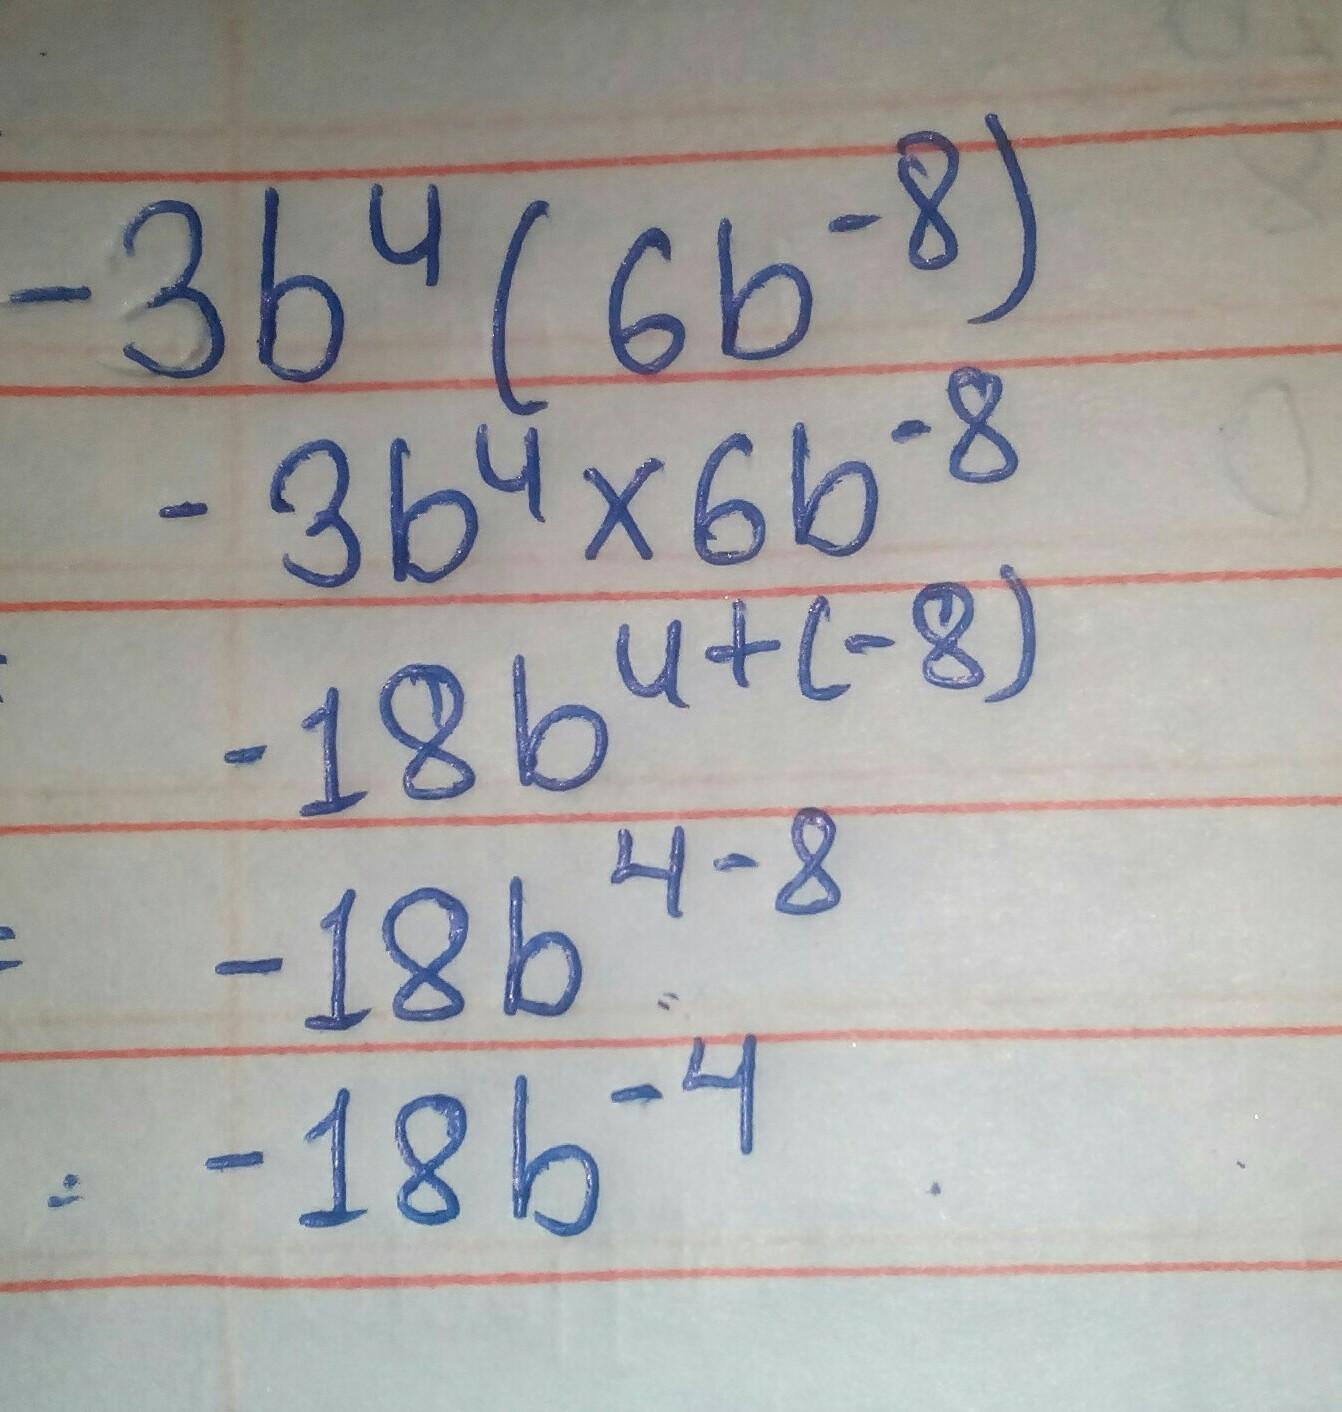 -3b⁴(6b⁻⁸)
-3b⁴×6b⁻⁸
= -18b⁴⁺⁽⁻⁸⁾
= -18b⁴⁻⁸
= -18b⁻⁴